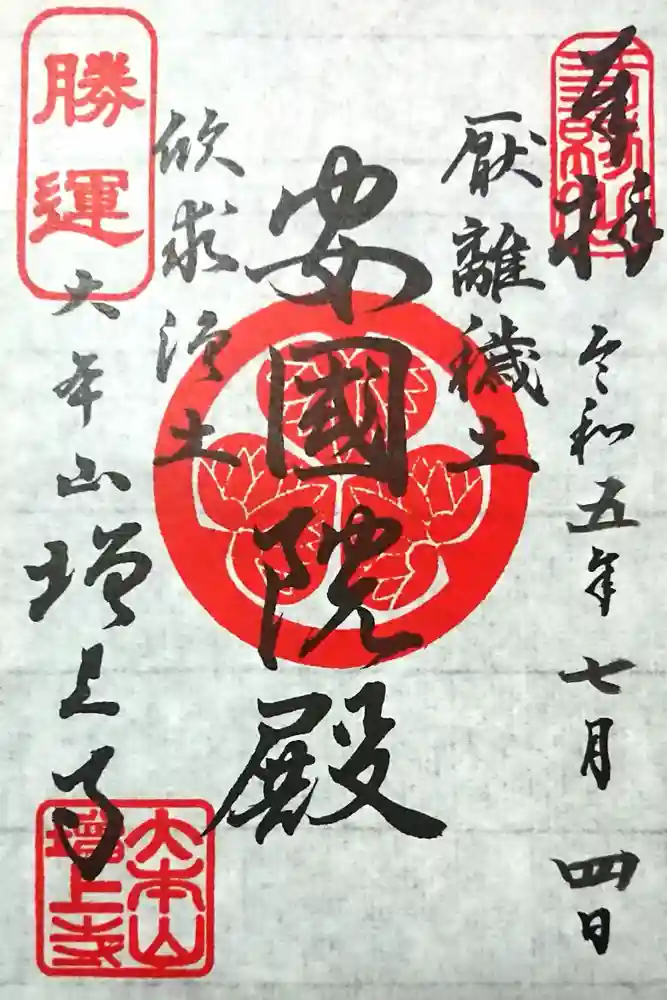 奉拝
令和五年七月四日
厭離穢土
安國院殿
欣求浄土
勝運
大本山増上寺
大本山
増上寺